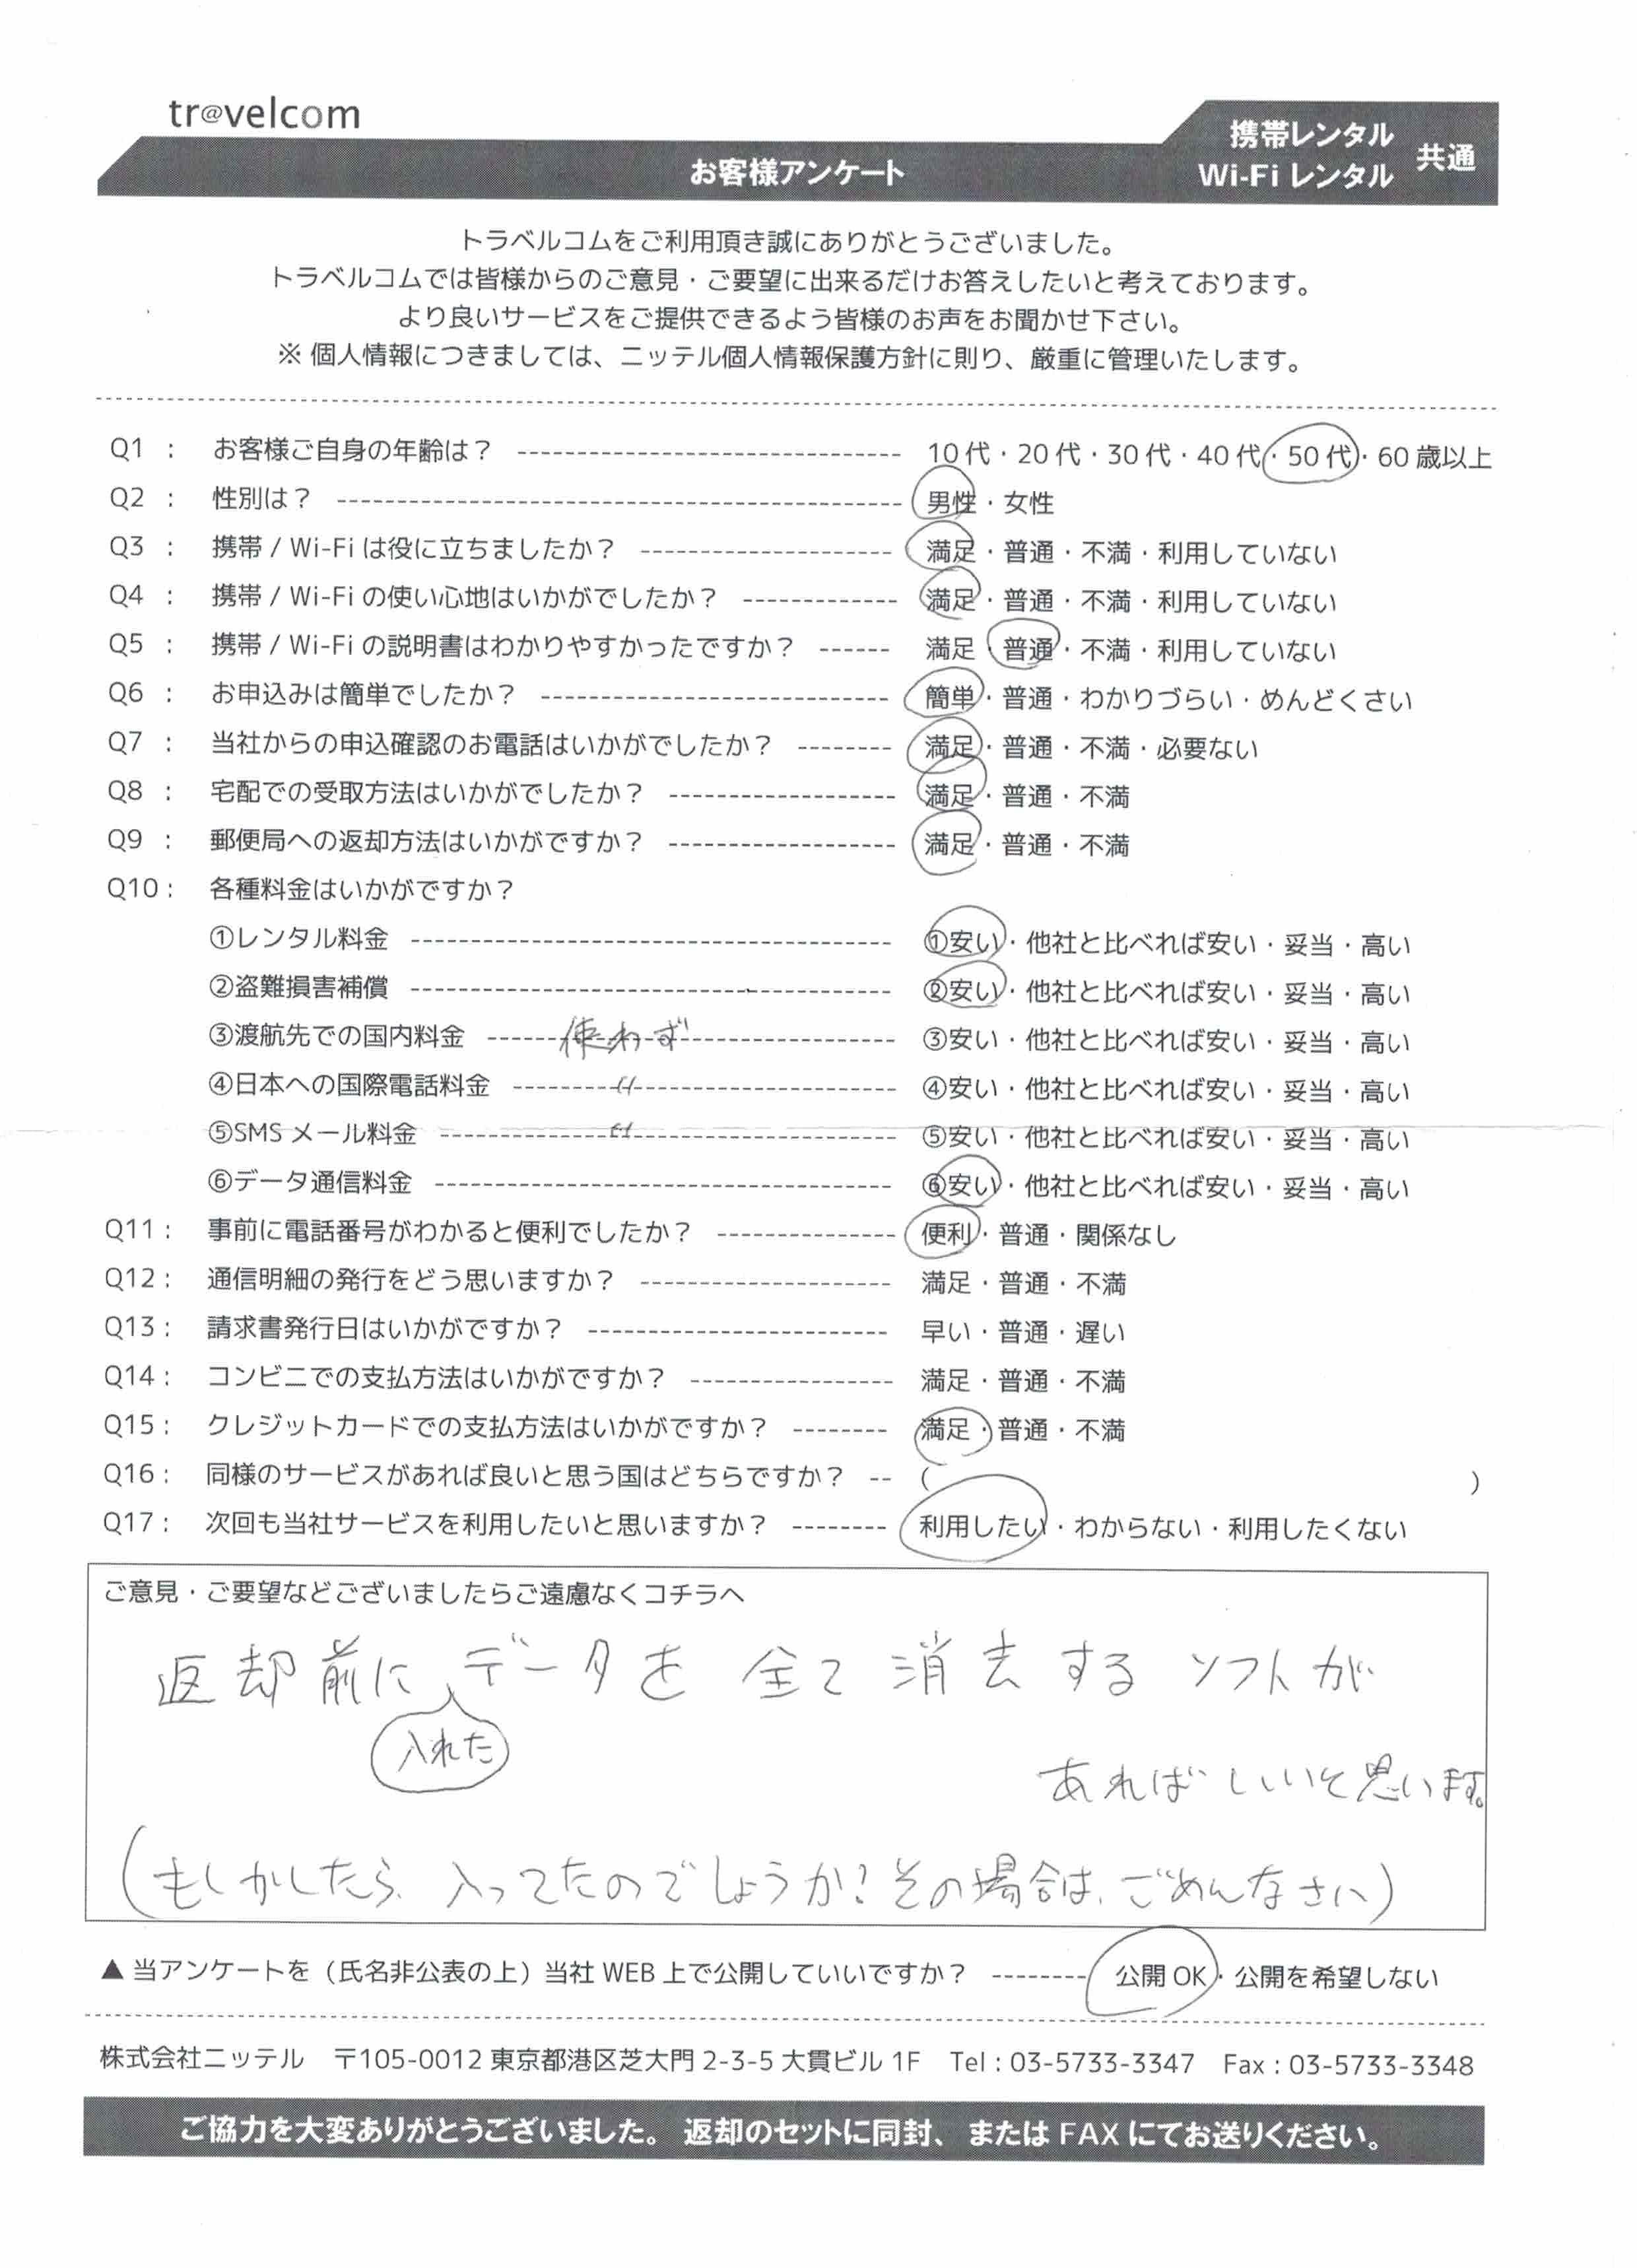 tr@velcom
お客様アンケート
携帯レンタル
Wi-Fi レンタル
共通
トラベルコムをご利用頂き誠にありがとうございました。
トラベルコムでは皆様からのご意見・ご要望に出来るだけお答えしたいと考えております。
より良いサービスをご提供できるよう皆様のお声をお聞かせ下さい。
※ 個人情報につきましては、ニッテル個人情報保護方針に則り、厳重に管理いたします。
Q1 : お客様ご自身の年齢は? ------------------------------ 10代・20代・30代・40代・50代・60歳以上
Q2 : 性別は? -------------------------------------------- 男性・女性
Q3 : 携帯 / Wi-Fi は役に立ちましたか? -------------------- 満足・普通・不満・利用していない
Q4 : 携帯 / Wi-Fi の使い心地はいかがでしたか? ------------ 満足・普通・不満・利用していない
Q5 : 携帯 / Wi-Fi の説明書はわかりやすかったですか? ------ 満足・普通・不満・利用していない
Q6 : お申込みは簡単でしたか? --------------------------- 簡単・普通・わかりづらい・めんどくさい
Q7 : 当社からの申込確認のお電話はいかがでしたか? -------- 満足・普通・不満・必要ない
Q8 : 宅配での受取方法はいかがでしたか? ------------------ 満足・普通・不満
Q9 : 郵便局への返却方法はいかがですか? ------------------ 満足・普通・不満
Q10 : 各種料金はいかがですか?
①レンタル料金 -------------------------------------- ①安い・他社と比べれば安い・妥当・高い
②盗難損害補償 -------------------------------------- ②安い・他社と比べれば安い・妥当・高い
③渡航先での国内料金 ------使わず---------------- ③安い・他社と比べれば安い・妥当・高い
④日本への国際電話料金 --------〃-------------------- ④安い・他社と比べれば安い・妥当・高い
⑤SMS メール料金 -------------〃-------------------- ⑤安い・他社と比べれば安い・妥当・高い
⑥データ通信料金 ------------------------------------ ⑥安い・他社と比べれば安い・妥当・高い
Q11 : 事前に電話番号がわかると便利でしたか? -------------- 便利・普通・関係なし
Q12 : 通信明細の発行をどう思いますか? -------------------- 満足・普通・不満
Q13 : 請求書発行日はいかがですか? ------------------------ 早い・普通・遅い
Q14 : コンビニでの支払方法はいかがですか? ---------------- 満足・普通・不満
Q15 : クレジットカードでの支払方法はいかがですか? -------- 満足・普通・不満
Q16 : 同様のサービスがあれば良いと思う国はどちらですか? -- ( )
Q17 : 次回も当社サービスを利用したいと思いますか? -------- 利用したい・わからない・利用したくない
ご意見・ご要望などございましたらご遠慮なくコチラへ
返却前にデータを全て消去するソフトが
入れた
あればしいいと思います。
(もしかしたら、入ってたのでしょうか?その場合は、ごめんなさい)
▲ 当アンケートを(氏名非公表の上)当社 WEB 上で公開していいですか? -------- 公開 OK・公開を希望しない
株式会社ニッテル 〒105-0012 東京都港区芝大門 2-3-5 大貫ビル 1F Tel : 03-5733-3347 Fax : 03-5733-3348
ご協力を大変ありがとうございました。 返却のセットに同封、または FAX にてお送りください。